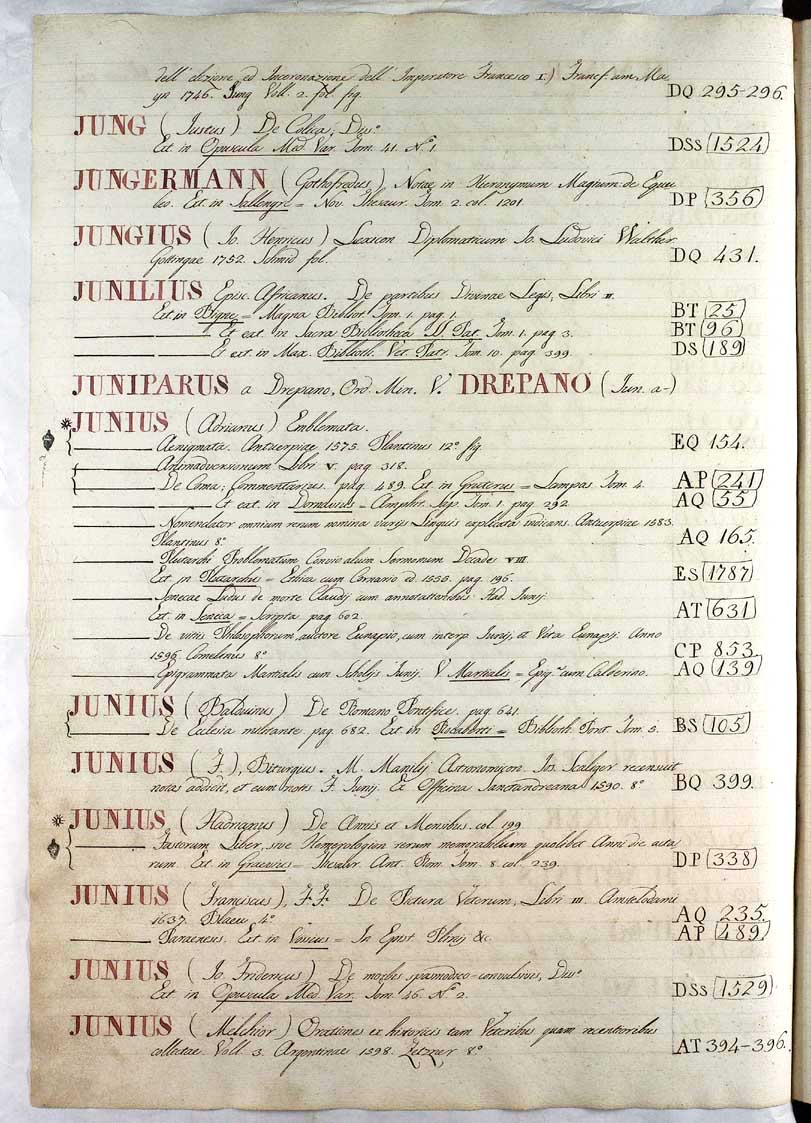 dell' elezione ed Incoronazione dell' Imperatore Francesco I.) Francf. am Ma-
yn 1746. Jung Voll. 2. fol. fig. DQ 295-296.
JUNG (Justus) De Colica; Diss.º
Ext. in Opuscula Med. Var. Tom. 41. Nº 1. DSS 1524
JUNGERMANN (Gothofredus) Notae in Hieronymum Magnum de Equu-
leo. Ext. in Sallengre = Nov. Thesaur. Tom. 2. col. 1201. DP 356
JUNGIUS (Jo. Henricus) Lexicon Diplomaticum Jo. Ludovici Walther.
Gottingae 1752. Schmid fol. DQ 431.
JUNILIUS Episc. Africanus. De partibus Divinae Legis, Libri II.
Ext in Bigne = Magna Bibliot. Tom. 1. pag. 1. BT 25
Et ext. in Sacra Bibliotheca SS. Pat. Tom. 1. pag. 3. BT 96
Et ext. in Max. Biblioth. Vet. Patr. Tom. 10. pag. 399. DS 189
JUNIPARUS a Drepano, Ord. Min. V. DREPANO (Jun. a-)
JUNIUS (Adrianus) Emblemata.
Aenigmata. Antuerpiae 1575. Plantinus 12º fig. EQ 154.
Animadversionum Libri V. pag. 318.
De Coma; Commentarius. pag. 489. Ext. in Gruterus = Lampas Tom. 4. AP 241
Et ext. in Dornavius = Amphit. Sap. Tom. 1. pag. 292 AQ 55
Nomenclator omnium rerum nomina varijs Linguis explicata indicans. Antuerpiae 1583.
Plantinus 8º AQ 165.
Plutarchi Problematum Convivalium Sermonum Decade VIII.
Ext. in Plutarchus = Ethica cum Cornario ed. 1555. pag. 196. ES 1787
Senecae Ludus de morte Claudij cum annotationibus Had. Junij.
Ext. in Seneca = Scripta pag. 602. AT 631
De vitis Philosophorum, auctore Eunapio, cum interp. Junij, et Vita Eunapij. Anno
1596. Comelinus 8º CP 853.
Epigrammata Martialis cum Scholijs Junij. V. Martialis = Epig.ª cum Calderino. AQ 139
JUNIUS (Balduinus) De Romano Pontifice. pag. 641.
De Ecclesia militante. pag. 682. Ext. in Rocaberti = Biblioth. Pont. Tom. 5. BS 105
JUNIUS (F.), Biturgius. M. Manilij Astronomicon. Jos. Scaliger recensuit
notas addidit, et cum notis F. Junij. Ex Officina Sanctandreana 1590. 8º BQ 399.
JUNIUS (Hadrianus) De Annis et Mensibus. col. 199
Fastorum Liber, sive Hemerologion rerum memorabilium quolibet Anni die acta-
rum. Ext. in Graevius = Thesaur. Ant. Rom. Tom. 8. col. 239. DP 338
JUNIUS (Franciscus), F. F. De Pictura Veterum, Libri III. Amstelodami
1637. Blaeu 4º AQ 235.
Paraenesis. Ext. in Vossius = In Epist. Plinij &c. AP 489
JUNIUS (Jo. Fridericus) De morbis spasmodico-convulsivis, Diss.º
Ext. in Opuscula Med. Var. Tom. 46. Nº 2. DSS 1529
JUNIUS (Melchior) Orationes ex historicis tam Veteribus quam recentioribus
collectae. Voll. 3. Argentinae 1598. Zetzner 8º AT 394-396.